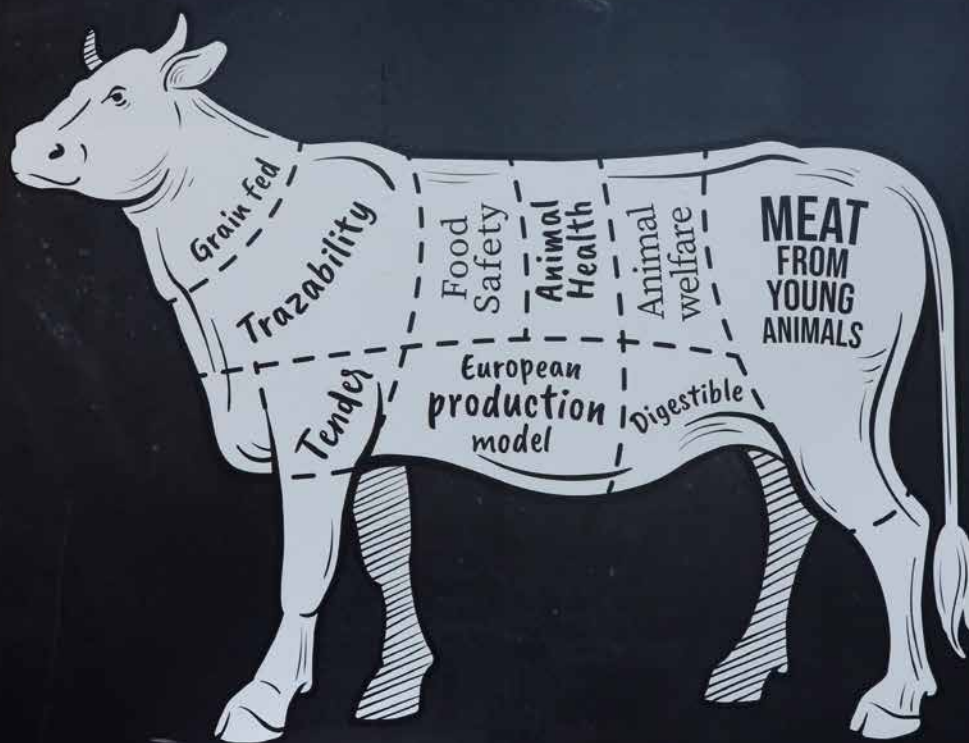 Grain fed
Trazability
Food
Safety
Animal
Health
Animal
welfare
MEAT
FROM
YOUNG
ANIMALS
Tender
European
production
model
Digestible